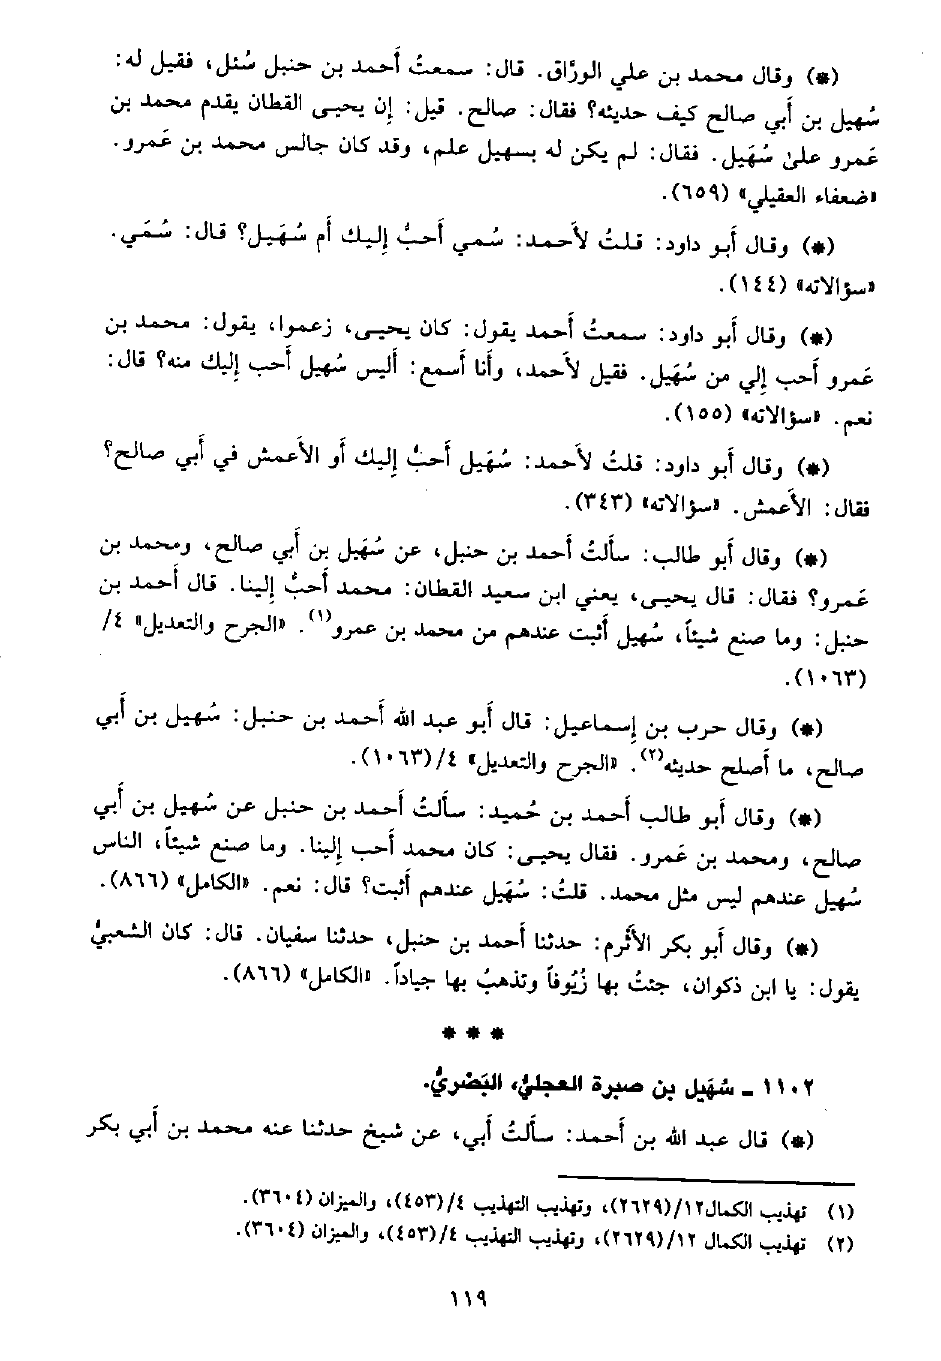 (*) وقال محمد بن علي الورَّاق. قال: سمعتُ أَحمد بن حنبل سُئل، فقيل له:
سُهيل بن أَبي صالح كيف حديثه؟ فقال: صالح. قيل: إن يحيى القطان يقدم محمد بن
عَمرو علىٰ سُهَيل. فقال: لم يكن له بسهيل علم، وقد كان جالس محمد بن عَمرو.
«ضعفاء العقيلي» (٦٥٩).
(*) وقال أَبو داود: قلتُ لأَحمد: سُمي أَحبُّ إليك أَم سُهَيل؟ قال: سُمَي.
«سؤالاته» (١٤٤).
(*) وقال أَبو داود: سمعتُ أَحمد يقول: كان يحيى، زعموا، يقول: محمد بن
عَمرو أَحب إلي من سُهَيل. فقيل لأَحمد، وأَنا أَسمع: أَليس سُهيل أَحب إليك منه؟ قال:
نعم. «سؤالاته» (١٥٥).
(*) وقال أَبو داود: قلتُ لأَحمد: سُهَيل أَحبُّ إليك أَو الأَعمش في أَبي صالح؟
فقال: الأَعمش. «سؤالاته» (٣٤٣).
(*) وقال أَبو طالب: سأَلتُ أَحمد بن حنبل، عن سُهَيل بن أَبي صالح، ومحمد بن
عَمرو؟ فقال: قال يحيى، يعني ابن سعيد القطان: محمد أَحبُّ إلينا. قال أَحمد بن
حنبل: وما صنع شيئاً، سُهيل أَثبت عندهم من محمد بن عمرو(١). «الجرح والتعديل» ٤/
(١٠٦٣).
(*) وقال حرب بن إسماعيل: قال أَبو عبد الله أَحمد بن حنبل: سُهيل بن أَبي
صالح، ما أَصلح حديثه(٢). «الجرح والتعديل» ٤/(١٠٦٣).
(*) وقال أَبو طالب أَحمد بن حُميد: سأَلتُ أَحمد بن حنبل عن سُهَيل بن أَبي
صالح، ومحمد بن عَمرو. فقال يحيى: كان محمد أَحب إلينا. وما صنع شيئاً، الناس
سُهيل عندهم ليس مثل محمد. قلتُ: سُهَيل عندهم أَثبت؟ قال: نعم. «الكامل» (٨٦٦).
(*) وقال أَبو بكر الأَثرم: حدثنا أَحمد بن حنبل، حدثنا سفيان. قال: كان الشعبيُّ
يقول: يا ابن ذكوان، جئتُ بها زُيُوفاً وتذهبُ بها جياداً. «الكامل» (٨٦٦).
* * *
١١٠٢ ـ سُهَيل بن صبرة العجليُّ، البَصْريُّ.
(*) قال عبد الله بن أَحمد: سأَلتُ أَبي، عن شيخ حدثنا عنه محمد بن أَبي بكر
(١) تهذيب الكمال١٢/(٢٦٢٩)، وتهذيب التهذيب ٤/(٤٥٣)، والميزان (٣٦٠٤).
(٢) تهذيب الكمال ١٢/(٢٦٢٩)، وتهذيب التهذيب ٤/(٤٥٣)، والميزان (٣٦٠٤).
١١٩